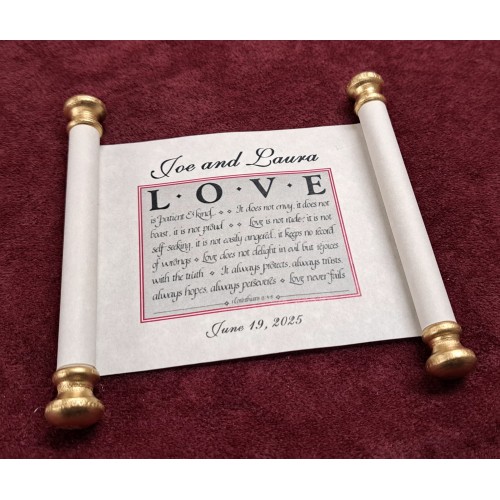 Joe and Laura
L·O·V·E
is patient & kind. It does not envy, it does not
boast, it is not proud. Love is not rude; it is not
self-seeking, it is not easily angered, it keeps no record
of wrongs. Love does not delight in evil but rejoices
with the truth. It always protects, always trusts,
always hopes, always perseveres. Love never fails
June 19, 2025